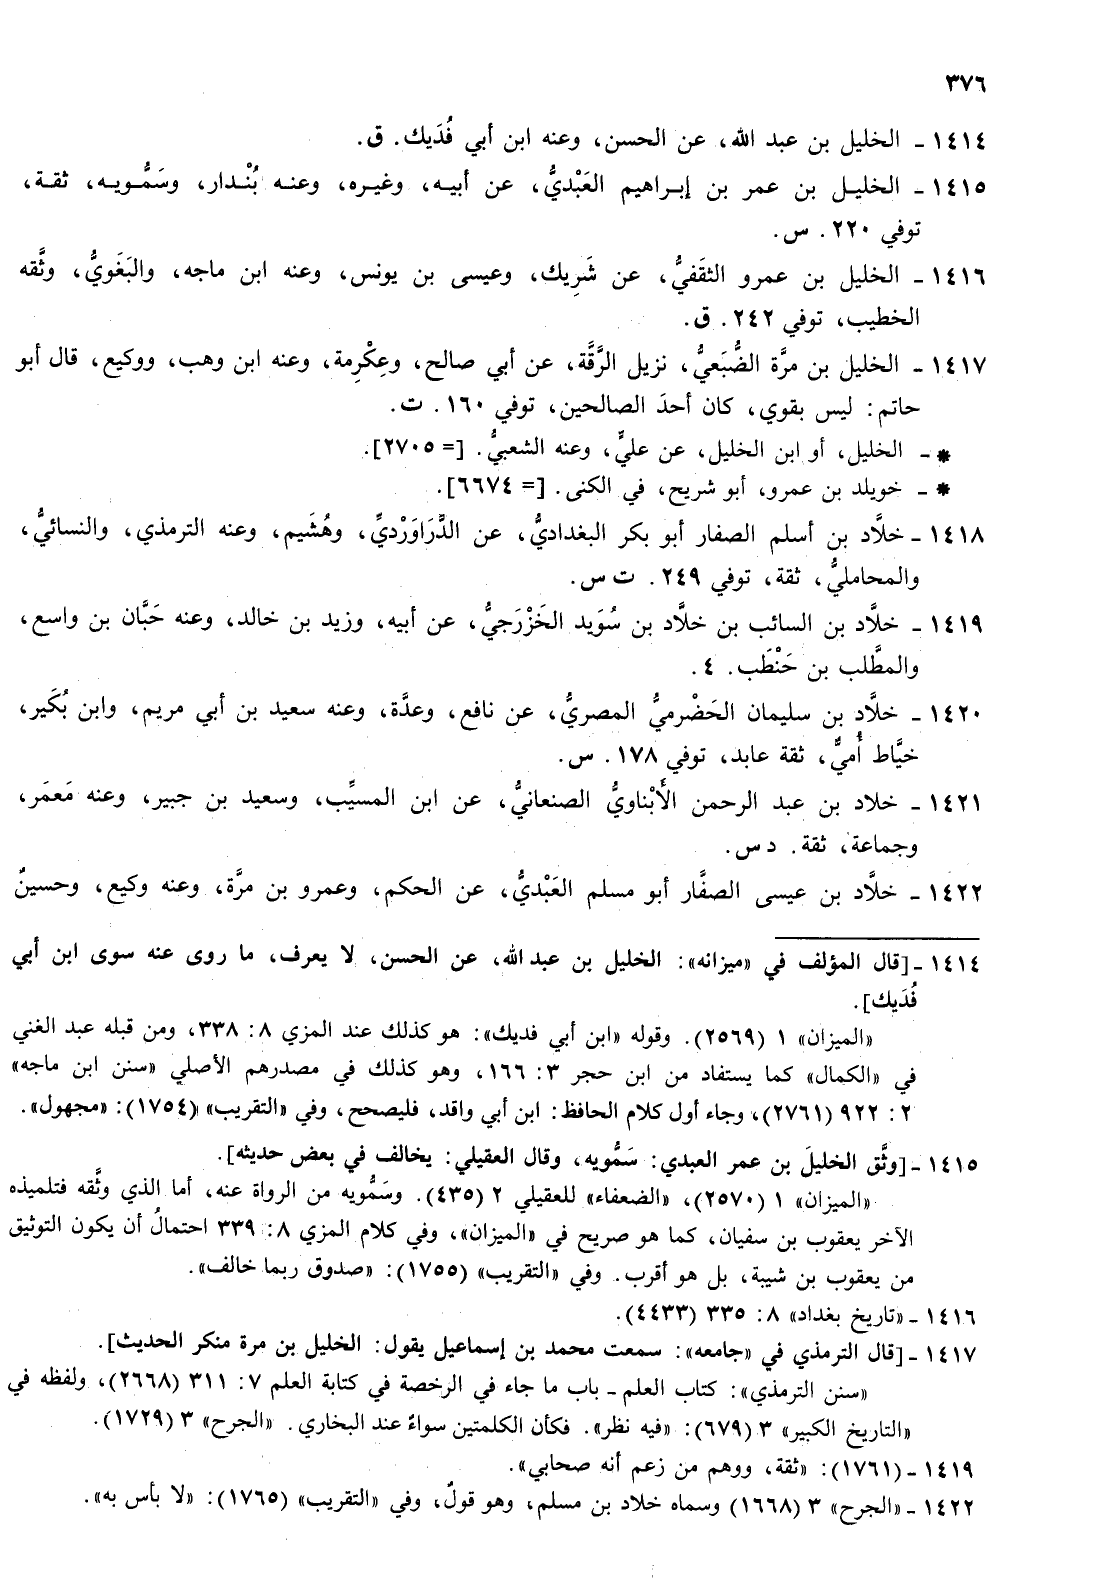 ٣٧٦
١٤١٤ ـ الخليل بن عبد الله، عن الحسن، وعنه ابن أبي فُدَيك. ق.
١٤١٥ ـ الخليـل بن عمر بن إبـراهيم العَبْديُّ، عن أبيـه، وغيـره، وعنـه بُنْـدار، وسَمُّـويـه، ثقـة،
توفي ٢٢٠. س.
١٤١٦ ـ الخليل بن عمرو الثقَفيُّ، عن شَرِيك، وعيسى بن يونس، وعنه ابن ماجه، والبَغَويُّ، وثَّقه
الخطيب، توفي ٢٤٢. ق.
١٤١٧ ـ الخليل بن مرَّة الضُّبَعيُّ، نزيل الرَّقَّة، عن أبي صالح، وعِكْرِمة، وعنه ابن وهب، ووكيع، قال أبو
حاتم: ليس بقوي، كان أحدَ الصالحين، توفي ١٦٠. ت.
* ـ الخليل، أو ابن الخليل، عن عليٍّ، وعنه الشعبيُّ. [= ٢٧٠٥].
* ـ خويلد بن عمرو، أبو شريح، في الكنى. [= ٦٦٧٤].
١٤١٨ ـ خلاَّد بن أسلم الصفار أبو بكر البغداديُّ، عن الدَّرَاوَرْديِّ، وهُشَيم، وعنه الترمذي، والنسائيُّ،
والمحامليُّ، ثقة، توفي ٢٤٩. ت س.
١٤١٩ ـ خلاَّد بن السائب بن خلاَّد بن سُوَيد الخَزْرَجيُّ، عن أبيه، وزيد بن خالد، وعنه حَبَّان بن واسع،
والمطَّلب بن حَنْطَب. ٤.
١٤٢٠ ـ خلاَّد بن سليمان الحَضْرميُّ المصريُّ، عن نافع، وعدَّة، وعنه سعيد بن أبي مريم، وابن بُكَير،
خيَّاط أُميٌّ، ثقة عابد، توفي ١٧٨. س.
١٤٢١ ـ خلاد بن عبد الرحمن الأَبْناويُّ الصنعانيُّ، عن ابن المسيِّب، وسعيد بن جبير، وعنه مَعمَر،
وجماعة، ثقة. د س.
١٤٢٢ ـ خلاَّد بن عيسى الصفَّار أبو مسلم العَبْديُّ، عن الحكم، وعمرو بن مرَّة، وعنه وكيع، وحسينٌ
١٤١٤ ـ [قال المؤلف في «ميزانه»: الخليل بن عبد الله، عن الحسن، لا يعرف، ما روى عنه سوى ابن أبي
فُدَيك].
«الميزان» ١ (٢٥٦٩). وقوله «ابن أبي فديك»: هو كذلك عند المزي ٨: ٣٣٨، ومن قبله عبد الغني
في «الكمال» كما يستفاد من ابن حجر ٣: ١٦٦، وهو كذلك في مصدرهم الأصلي «سنن ابن ماجه»
٢: ٩٢٢ (٢٧٦١)، وجاء أول كلام الحافظ: ابن أبي واقد، فليصحح، وفي «التقريب» (١٧٥٤): «مجهول».
١٤١٥ ـ [وثَّق الخليلَ بن عمر العبدي: سَمُّويه، وقال العقيلي: يخالف في بعض حديثه].
«الميزان» ١ (٢٥٧٠)، «الضعفاء» للعقيلي ٢ (٤٣٥). وسَمُّويه من الرواة عنه، أما الذي وثَّقه فتلميذه
الآخر يعقوب بن سفيان، كما هو صريح في «الميزان»، وفي كلام المزي ٨: ٣٣٩ احتمالُ أن يكون التوثيق
من يعقوب بن شيبة، بل هو أقرب. وفي «التقريب» (١٧٥٥): «صدوق ربما خالف».
١٤١٦ ـ «تاريخ بغداد» ٨: ٣٣٥ (٤٤٣٣).
١٤١٧ ـ [قال الترمذي في «جامعه»: سمعت محمد بن إسماعيل يقول: الخليل بن مرة منكر الحديث].
«سنن الترمذي»: كتاب العلم ـ باب ما جاء في الرخصة في كتابة العلم ٧: ٣١١ (٢٦٦٨)، ولفظه في
«التاريخ الكبير» ٣ (٦٧٩): «فيه نظر». فكأن الكلمتين سواءً عند البخاري. «الجرح» ٣ (١٧٢٩).
١٤١٩ ـ (١٧٦١): «ثقة، ووهم من زعم أنه صحابي».
١٤٢٢ ـ «الجرح» ٣ (١٦٦٨) وسماه خلاد بن مسلم، وهو قولٌ، وفي «التقريب» (١٧٦٥): «لا بأس به».